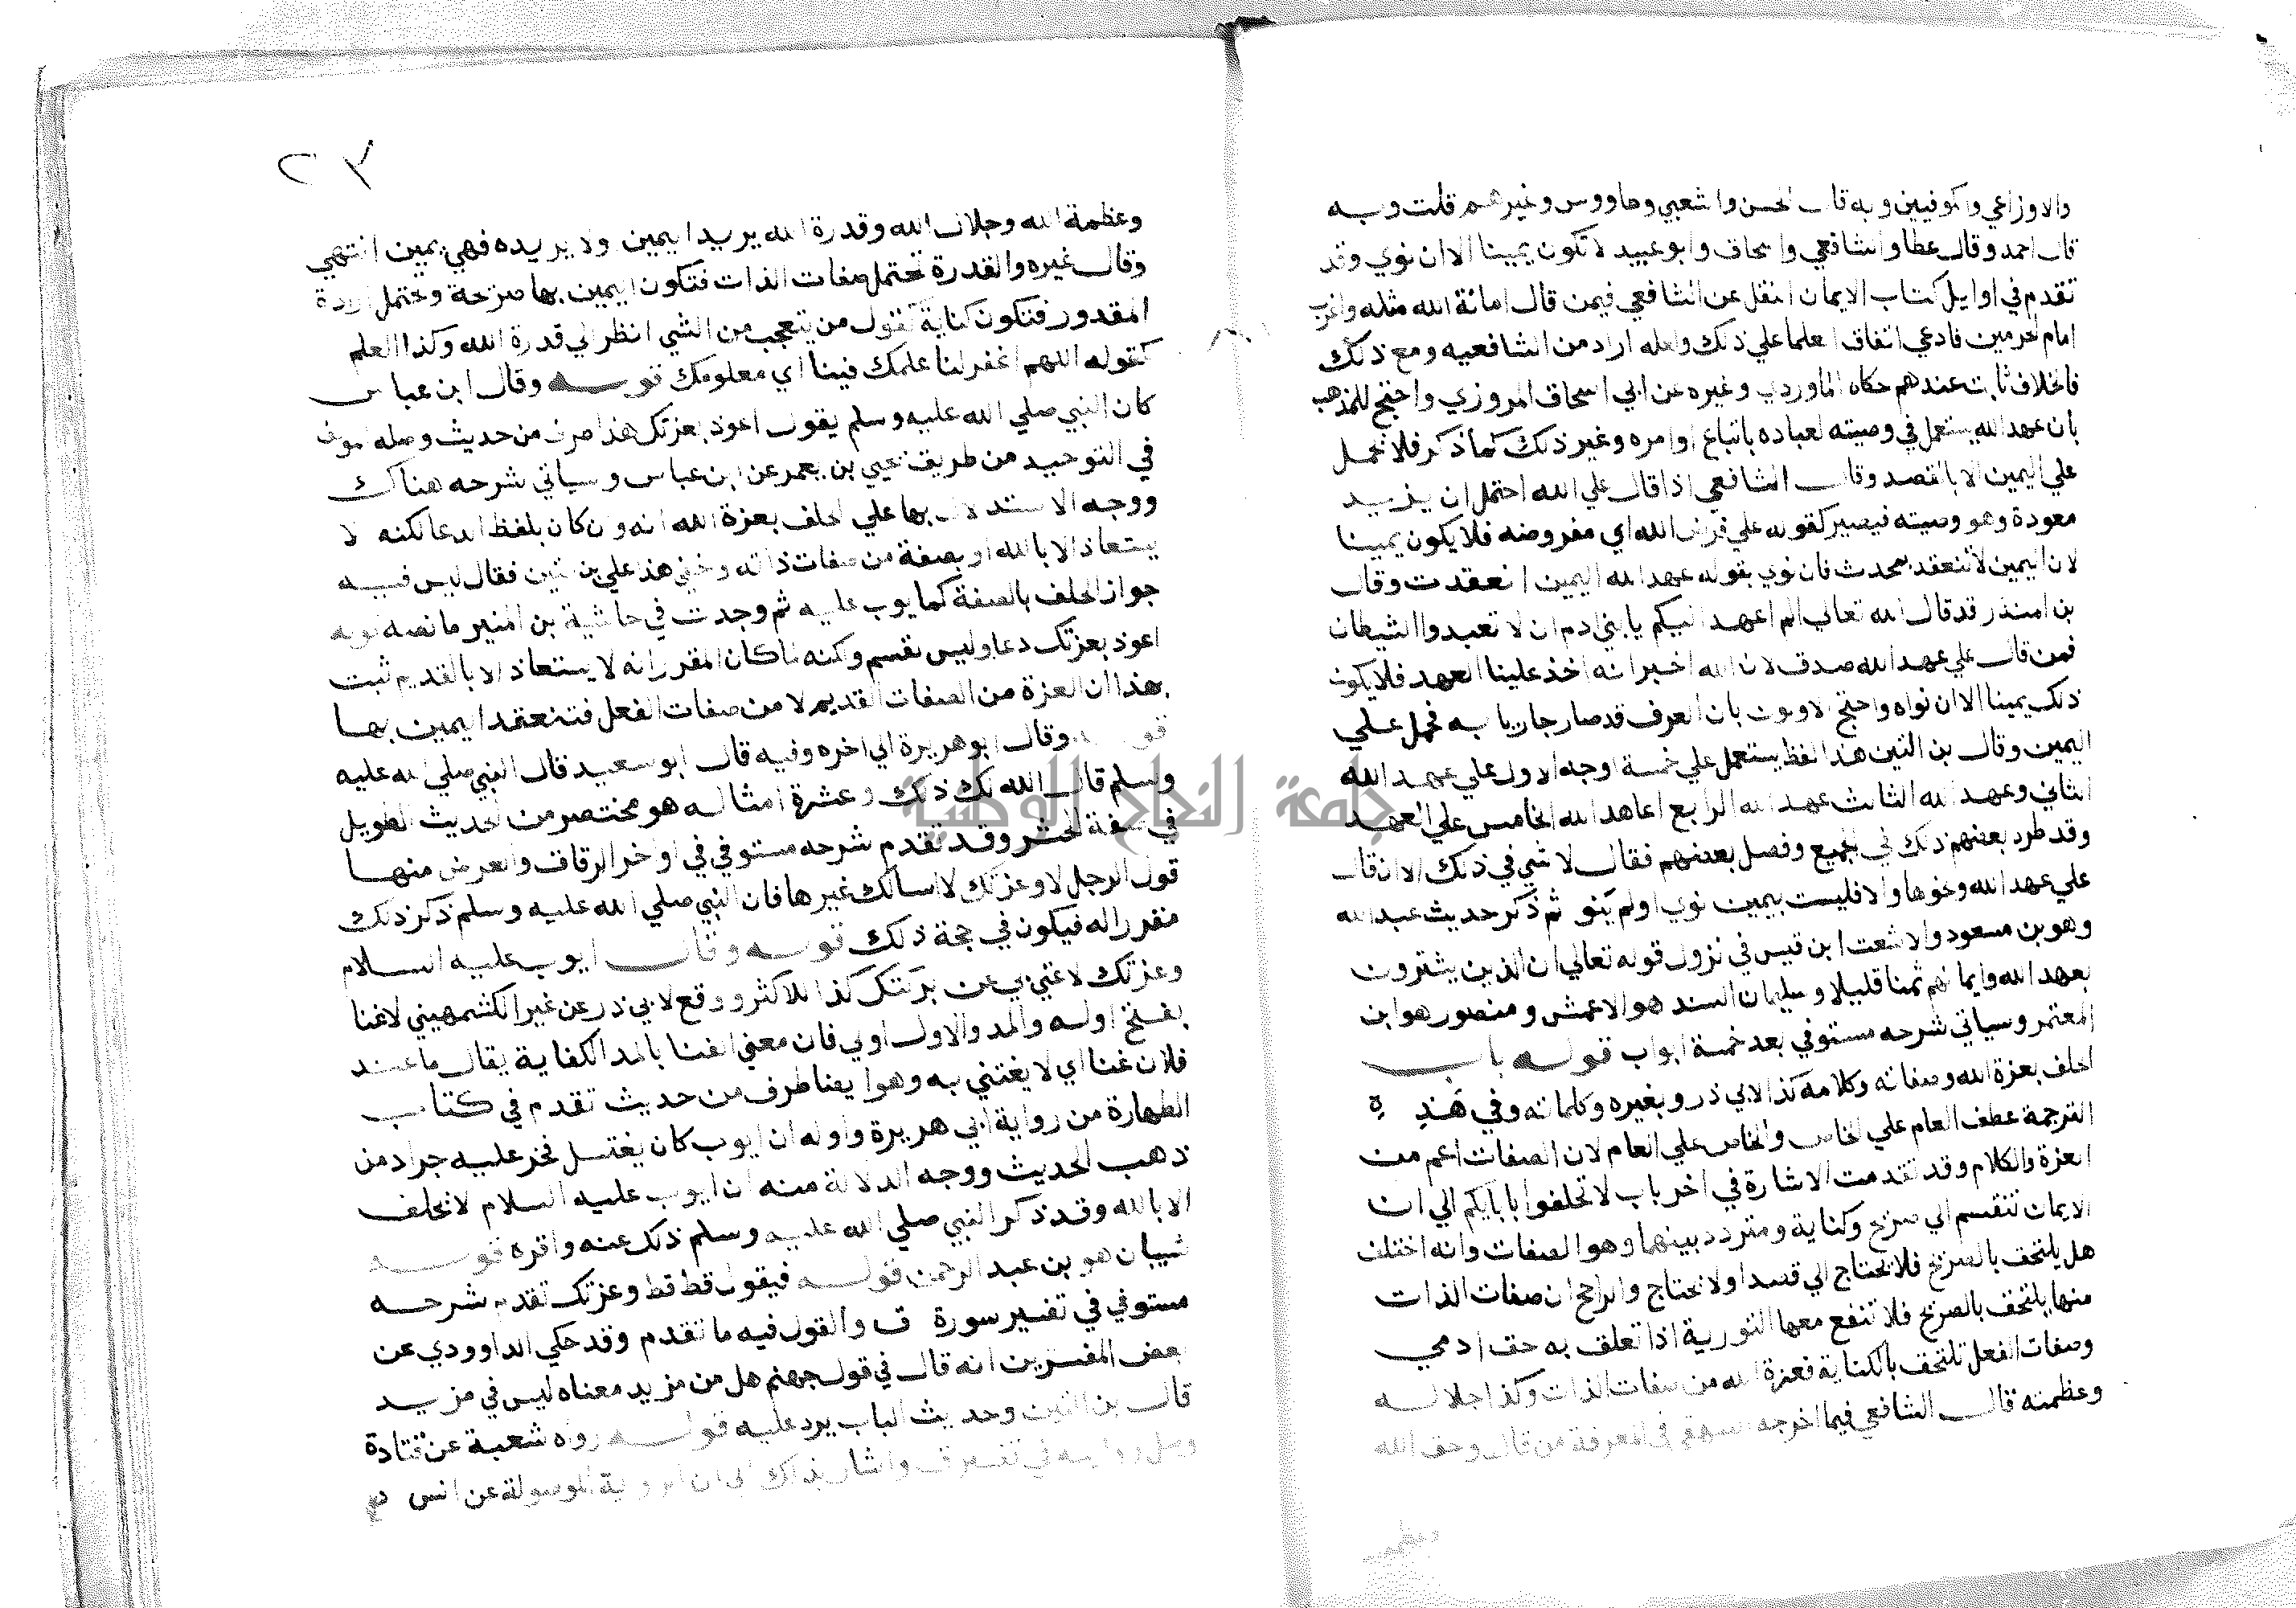 والاوزاعي والكوفيين وبه قال الحسن والشعبي وطاووس وغيرهم قلت وبه
قال احمد وقال عطا والشافعي واسحاق وابو عبيد لا تكون يمينا الا ان نوي وقد
تقدم في اوايل كتاب الايمان النقل عن الشافعي فيمن قال امانة الله مثله واغرب
امام الحرمين فادعي اتفاق العلما علي ذلك ولعله اراد من الشافعيه ومع ذلك
فالخلاف ثابت عندهم حكاه الماوردي وغيره عن ابي اسحاق المروزي واحتج للمذهب
بان عهد الله يستعمل في وصيته لعباده باتباع اوامره وغير ذلك كما ذكر فلا يحمل
علي اليمين الا بالقصد وقال الشافعي اذا قال علي الله احتمل ان يريد
معهودة وهو وصيته فيصير كقوله علي فرض الله اي مفروضه فلا يكون يمينا
لان اليمين لا تنعقد بمحدث فان نوي بقوله عهد الله اليمين انعقدت وقال
بن المنذر قد قال الله تعالي الم اعهد اليكم يا بني دم ان لا تعبدوا الشيطان
فمن قال علي عهد الله صدق لان الله اخبر انه اخذ علينا العهد فلا يكون
ذلك يمينا الا ان نواه واحتج الاولون بان العرف قد صار جاريا به فحمل علي
اليمين وقال بن التين هذا لفظ يستعمل علي خمسة اوجه الاول علي عهد الله
الثاني وعهد الله الثالث عهد الله الرابع اعاهد الله الخامس علي العهد
وقد طرد بعضهم ذلك في الجميع وفصل بعضهم فقال لا شي في ذلك الا ان قال
علي عهد الله ونحوها والا فليست بيمين نوي او لم ينو ثم ذكر حديث عبد الله
وهو بن مسعود والاشعث ابن قيس في نزول قوله تعالي ان الذين يشترون
بعهد الله وايمانهم ثمنا قليلا وسليمان السند هو الاعمش ومنصور هو ابن
المعتمر وسياتي شرحه مستوفي بعد خمسة ابواب قوله باب
الحلف بعزة الله وصفاته وكلامه كذا لابي ذر وبغيره وكلماته وفي هذه
الترجمة عطف العام علي الخاص والخاص علي العام لان الصفات اعم من
العزة والكلام وقد تقدمت الاشارة في اخر باب لا تحلفوا بابايكم الي ان
الايمان تنقسم الي صريح وكناية ومتردد بينهما وهو الصفات وانه اختلف
هل يلتحق بالصريح فلا يحتاج الي قصد او لا يحتاج والراجح ان صفات الذات
منها يلتحق بالصريح فلا تنفع معها التورية اذا تعلق به حق ادمي
وصفات الفعل تلتحق بالكناية فعزة الله من صفات الذات وكذا جلاله
وعظمته قال الشافعي فيما اخرجه البيهقي في المعرفة من قال وحق الله
وعظمة
٢٣
وعظمة الله وجلال الله وقدرة الله يريد اليمين ولا يريده فهي يمين انتهي
وقال غيره والقدرة تحتمل صفات الذات فتكون اليمين بها صريحة وتحتمل ارادة
المقدور فتكون كناية كقول من يتعجب من الشي انظر الي قدرة الله وكذا العلم
كقوله اللهم اغفر لنا علمك فينا اي معلومك قوله وقال ابن عباس
كان النبي صلي الله عليه وسلم يقول اعوذ بعزتك هذا طرف من حديث وصله المولف
في التوحيد من طريق يحيي بن يعمر عن ابن عباس وسياتي شرحه هناك
ووجه الاستدلال بها علي الحلف بعزة الله انه وان كان بلفظ الدعا لكنه لا
يستعاذ الا بالله او بصفة من صفات ذاته وخفي هذا علي بن التين فقال ليس فيه
جواز الحلف بالصفة كما بوب عليه ثم وجدت في حاشية بن المنير ما نصه قوله
اعوذ بعزتك دعا وليس بقسم ولكنه لما كان المقرر انه لا يستعاذ الا بالقديم ثبت
بهذا ان العزة من الصفات القديم لا من صفات الفعل فتنعقد اليمين بها
قوله وقال ابو هريرة الي اخره وفيه قال ابو سعيد قال النبي صلي الله عليه
وسلم قال الله لك ذلك وعشرة امثاله هو مختصر من الحديث الطويل
في صفة الحشر وقد تقدم شرحه مستوفي في اواخر الرقاق والغرض منها
قول الرجل لا وعزتك لا اسالك غيرها فان النبي صلي الله عليه وسلم ذكر ذلك
مقررا له فيكون في حجة ذلك قوله وقال ايوب عليه السلام
وعزتك لا غني بي عن بركتك كذا للاكثر ووقع لابي ذر عن غير الكشمهيني لا غنا
بفتح اوله والمد والاول اولي فان معني الغنا بالمد الكفاية يقال ما عند
فلان غنا اي لا يغتني به وهو ايضا طرف من حديث تقدم في كتاب
الطهارة من رواية ابي هريرة واوله ان ايوب كان يغتسل فخر عليه جراد من
ذهب الحديث ووجه الدلالة منه ان ايوب عليه السلام لا يحلف
الا بالله وقد ذكر النبي صلي الله عليه وسلم ذلك عنه واقره قوله
شيبان هو بن عبد الرحمن قوله فيقول قط قط وعزتك تقدم شرحه
مستوفي في تفسير سورة ق والقول فيه ما تقدم وقد حكي الداوودي عن
بعض المفسرين انه قال في قول جهنم هل من مزيد معناه ليس في مزيد
قال بن التين وحديث الباب يرد عليه قوله رواه شعبة عن قتادة
وصل روايته في تفسير ق واشار بذلك الي ان الرواية الموصولة عن انس
جامعة النجاح الوطنية